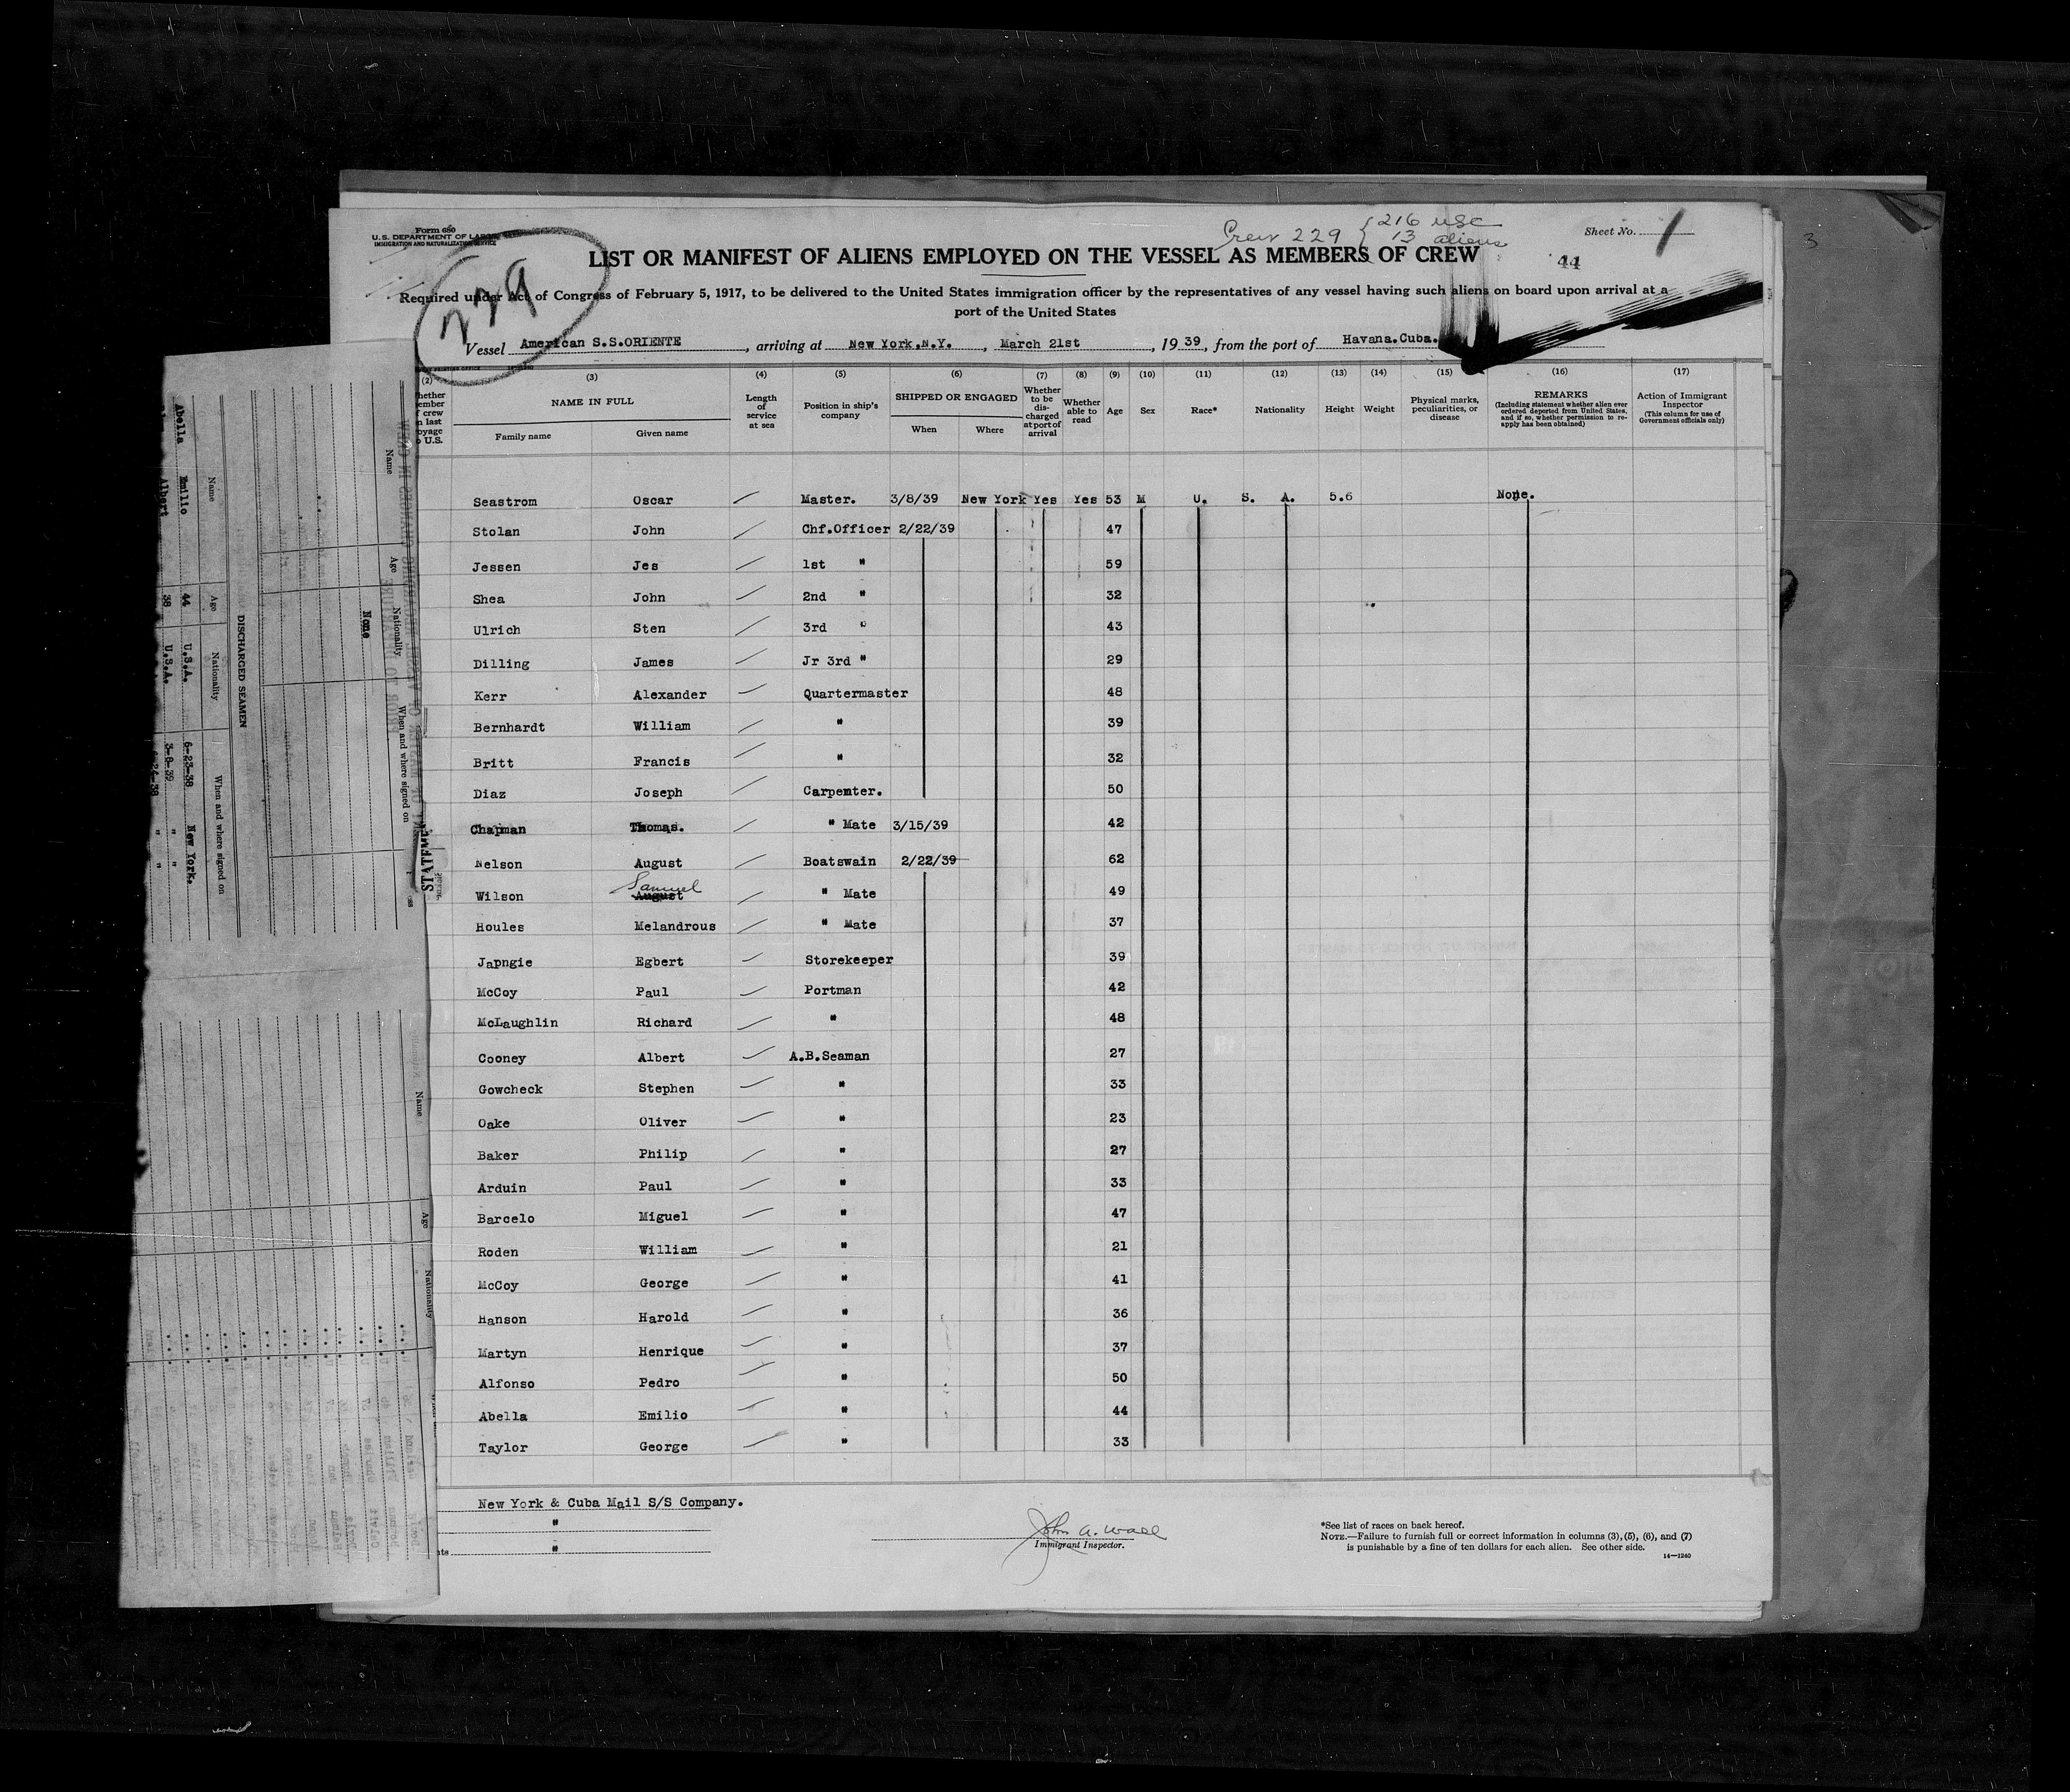 Form 680
U.S. DEPARTMENT OF LABOR
IMMIGRATION AND NATURALIZATION SERVICE
229
Crew 229 { 216 USC
13 aliens
Sheet No. 1
3
LIST OR MANIFEST OF ALIENS EMPLOYED ON THE VESSEL AS MEMBERS OF CREW
44
Required under Act of Congress of February 5, 1917, to be delivered to the United States immigration officer by the representatives of any vessel having such aliens on board upon arrival at a
port of the United States
Vessel American S.S.ORIENTE, arriving at New York.N.Y., March 21st, 1939, from the port of Havana.Cuba.
(2) (3) (4) (5) (6) (7) (8) (9) (10) (11) (12) (13) (14) (15) (16) (17)
NAME IN FULL
Family name Given name
Length of service at sea
Position in ship's company
SHIPPED OR ENGAGED
When Where
Whether to be discharged at port of arrival
Whether able to read
Age
Sex
Race*
Nationality
Height
Weight
Physical marks, peculiarities, or disease
REMARKS
(Including statement whether alien ever ordered deported from United States, and if so, whether permission to re-apply has been obtained)
Action of Immigrant Inspector
(This column for use of Government officials only)
Seastrom Oscar Master. 3/8/39 New York Yes Yes 53 M U. S. A. 5.6 None.
Stolan John Chf.Officer 2/22/39 47
Jessen Jes 1st " 59
Shea John 2nd " 32
Ulrich Sten 3rd " 43
Dilling James Jr 3rd " 29
Kerr Alexander Quartermaster 48
Bernhardt William " 39
Britt Francis " 32
Diaz Joseph Carpenter. 50
Chapman Thomas. " Mate 3/15/39 42
Nelson August Boatswain 2/22/39 62
Wilson August Samuel " Mate 49
Houles Melandrous " Mate 37
Japngie Egbert Storekeeper 39
McCoy Paul Portman 42
McLaughlin Richard " 48
Cooney Albert A.B.Seaman 27
Gowcheck Stephen " 33
Oake Oliver " 23
Baker Philip " 27
Arduin Paul " 33
Barcelo Miguel " 47
Roden William " 21
McCoy George " 41
Hanson Harold " 36
Martyn Henrique " 37
Alfonso Pedro " 50
Abella Emilio " 44
Taylor George " 33
New York & Cuba Mail S/S Company.
"
"
John A. Wall
Immigrant Inspector.
*See list of races on back hereof.
NOTE.—Failure to furnish full or correct information in columns (3), (5), (6), and (7)
is punishable by a fine of ten dollars for each alien. See other side.
14—1240
Name Age Nationality When and where signed on
None
DISCHARGED SEAMEN
Name Age Nationality When and where signed on
Abella Emilio 44 U.S.A. 6-23-38 New York.
Albert 38 U.S.A. 3-8-39 " "
Name Age Nationality